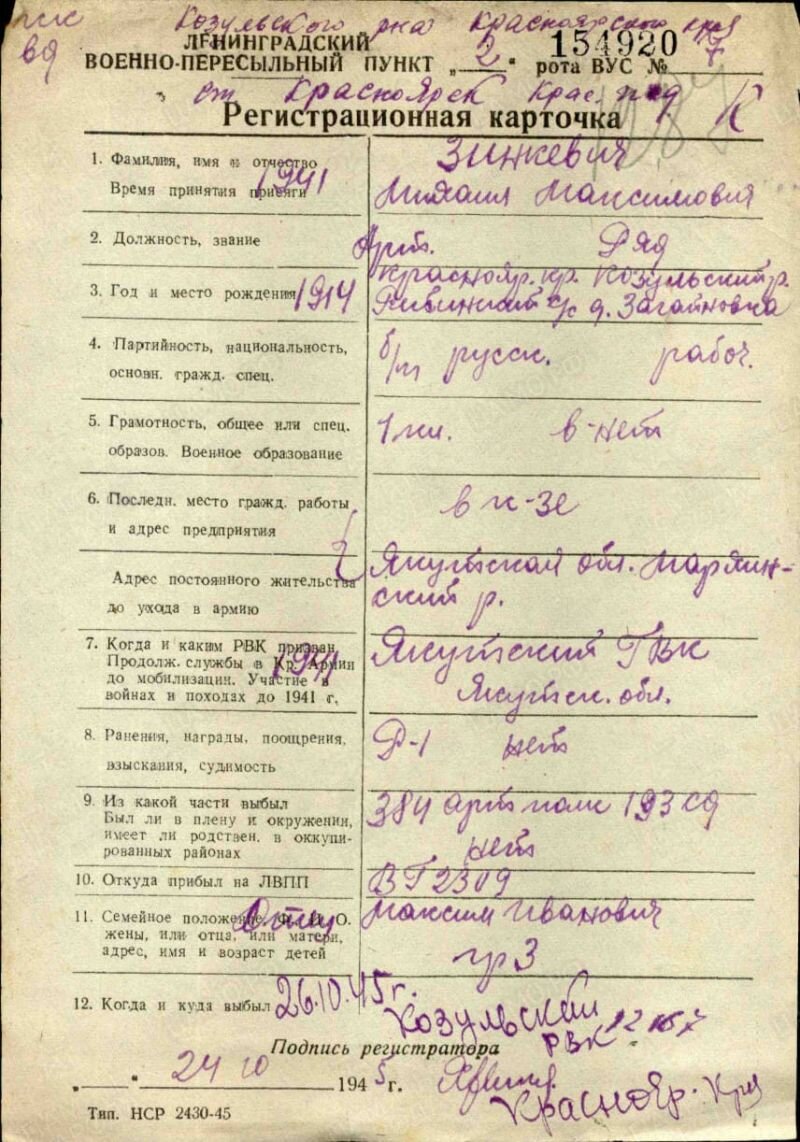 Козульского р-на Красноярского края
ЛЕНИНГРАДСКИЙ
154920
ВОЕННО-ПЕРЕСЫЛЬНЫЙ ПУНКТ „2“ рота ВУС № 7
ст Красноярск Крас.
Регистрационная карточка
1. Фамилия, имя и отчество
Время принятия присяги 1941
Зинкевич
Михаил Максимович
2. Должность, звание
Арт. Ряд
3. Год и место рождения 1914
Краснояр. кр. Козульский р.
с/с д. Загайновка
4. Партийность, национальность,
основн. гражд. спец.
б/п русск. рабоч.
5. Грамотность, общее или спец.
образов. Военное образование
1 кл. в-нет
6. Последн. место гражд. работы
и адрес предприятия
в к-зе
Адрес постоянного жительства
до ухода в армию
Якутская обл. Марьин-
ский р.
7. Когда и каким РВК призван
Продолж. службы в Кр. Армии
до мобилизации. Участие в
войнах и походах до 1941 г.
1941
Якутский ГВК
Якутск. обл.
8. Ранения, награды, поощрения,
взыскания, судимость
Р-1 нет
9. Из какой части выбыл
Был ли в плену и окружении,
имеет ли родствен. в оккупи-
рованных районах
384 арт полк 193 сд
нет
10. Откуда прибыл на ЛВПП
ВГ 2309
11. Семейное положение, Ф. И. О.
жены, или отца, или матери,
адрес, имя и возраст детей
Отец
Максим Иванович
гр 3
12. Когда и куда выбыл 26.10.45 г.
Козульский
РВК
Подпись регистратора
24 10 1945 г.
Краснояр. Края
Тип. НСР 2430-45